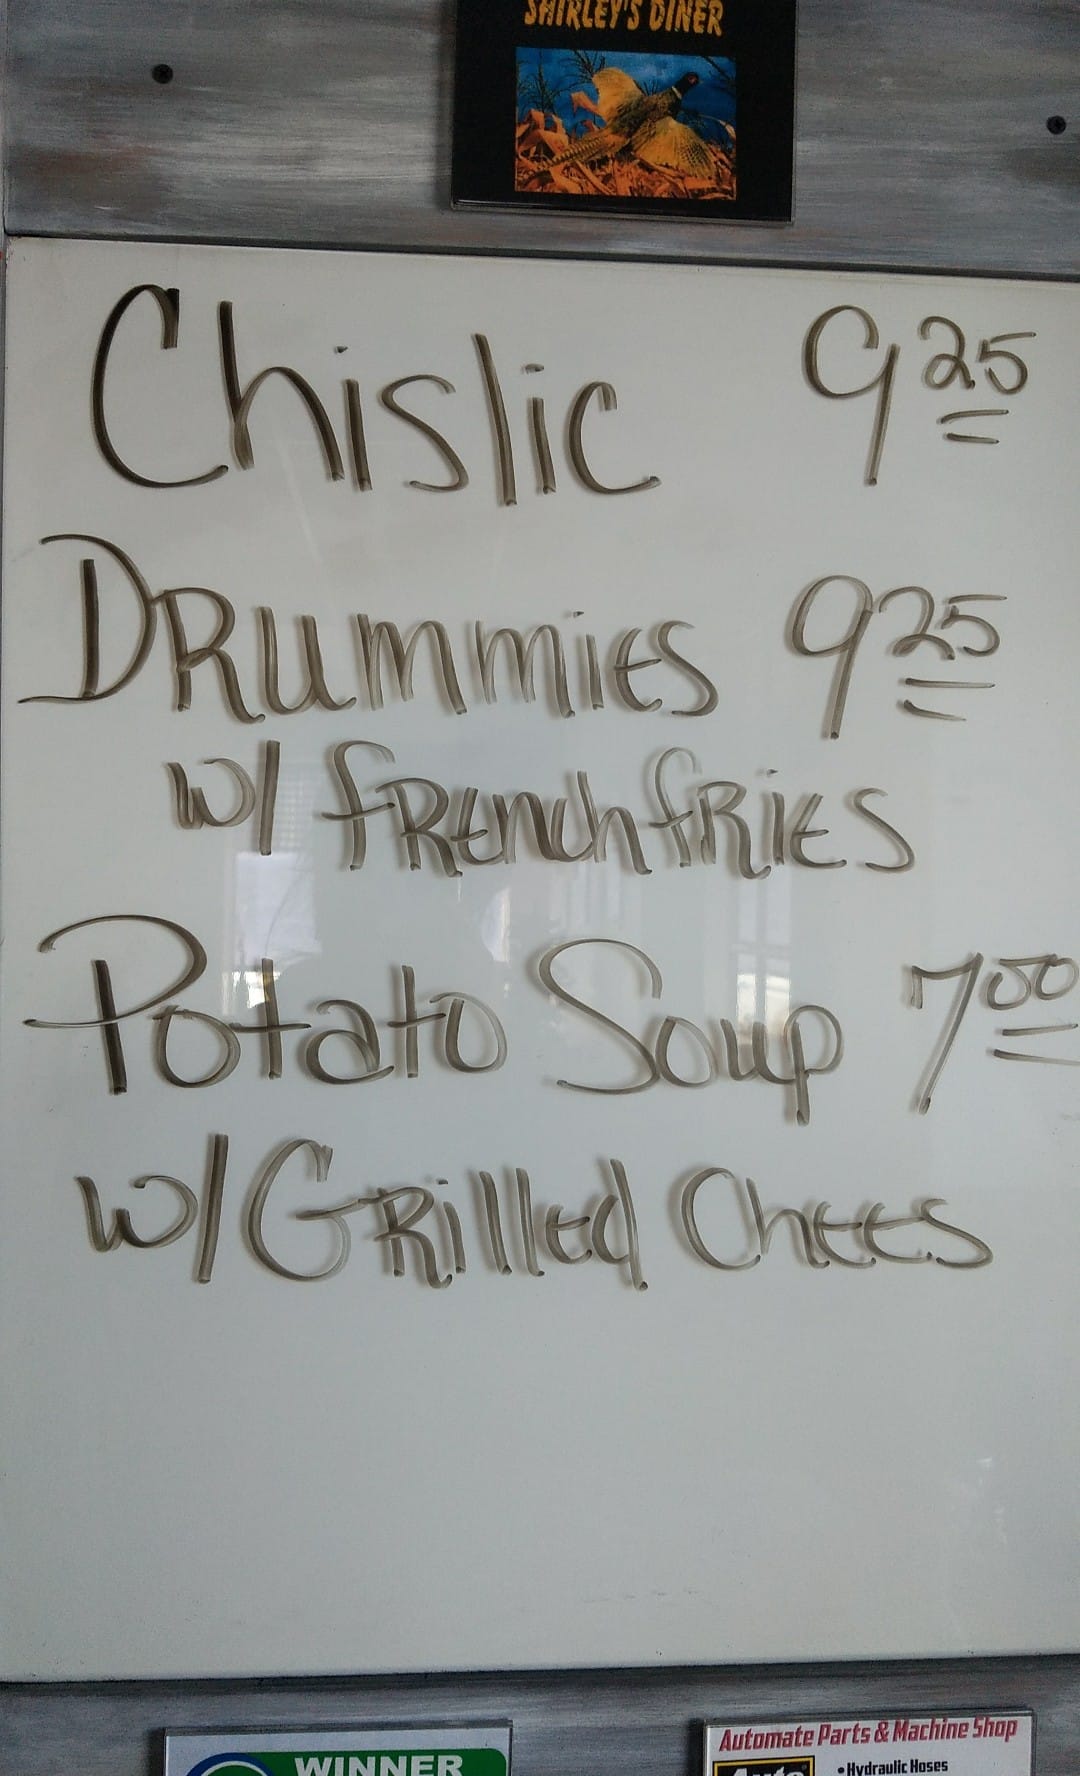 SHIRLEY'S DINER
Chislic 9 25
DRummies 9 25
w/ fRench fRies
Potato Soup 7 00
w/ GRilled Chees
WINNER
Automate Parts & Machine Shop
Auto
• Hydraulic Hoses